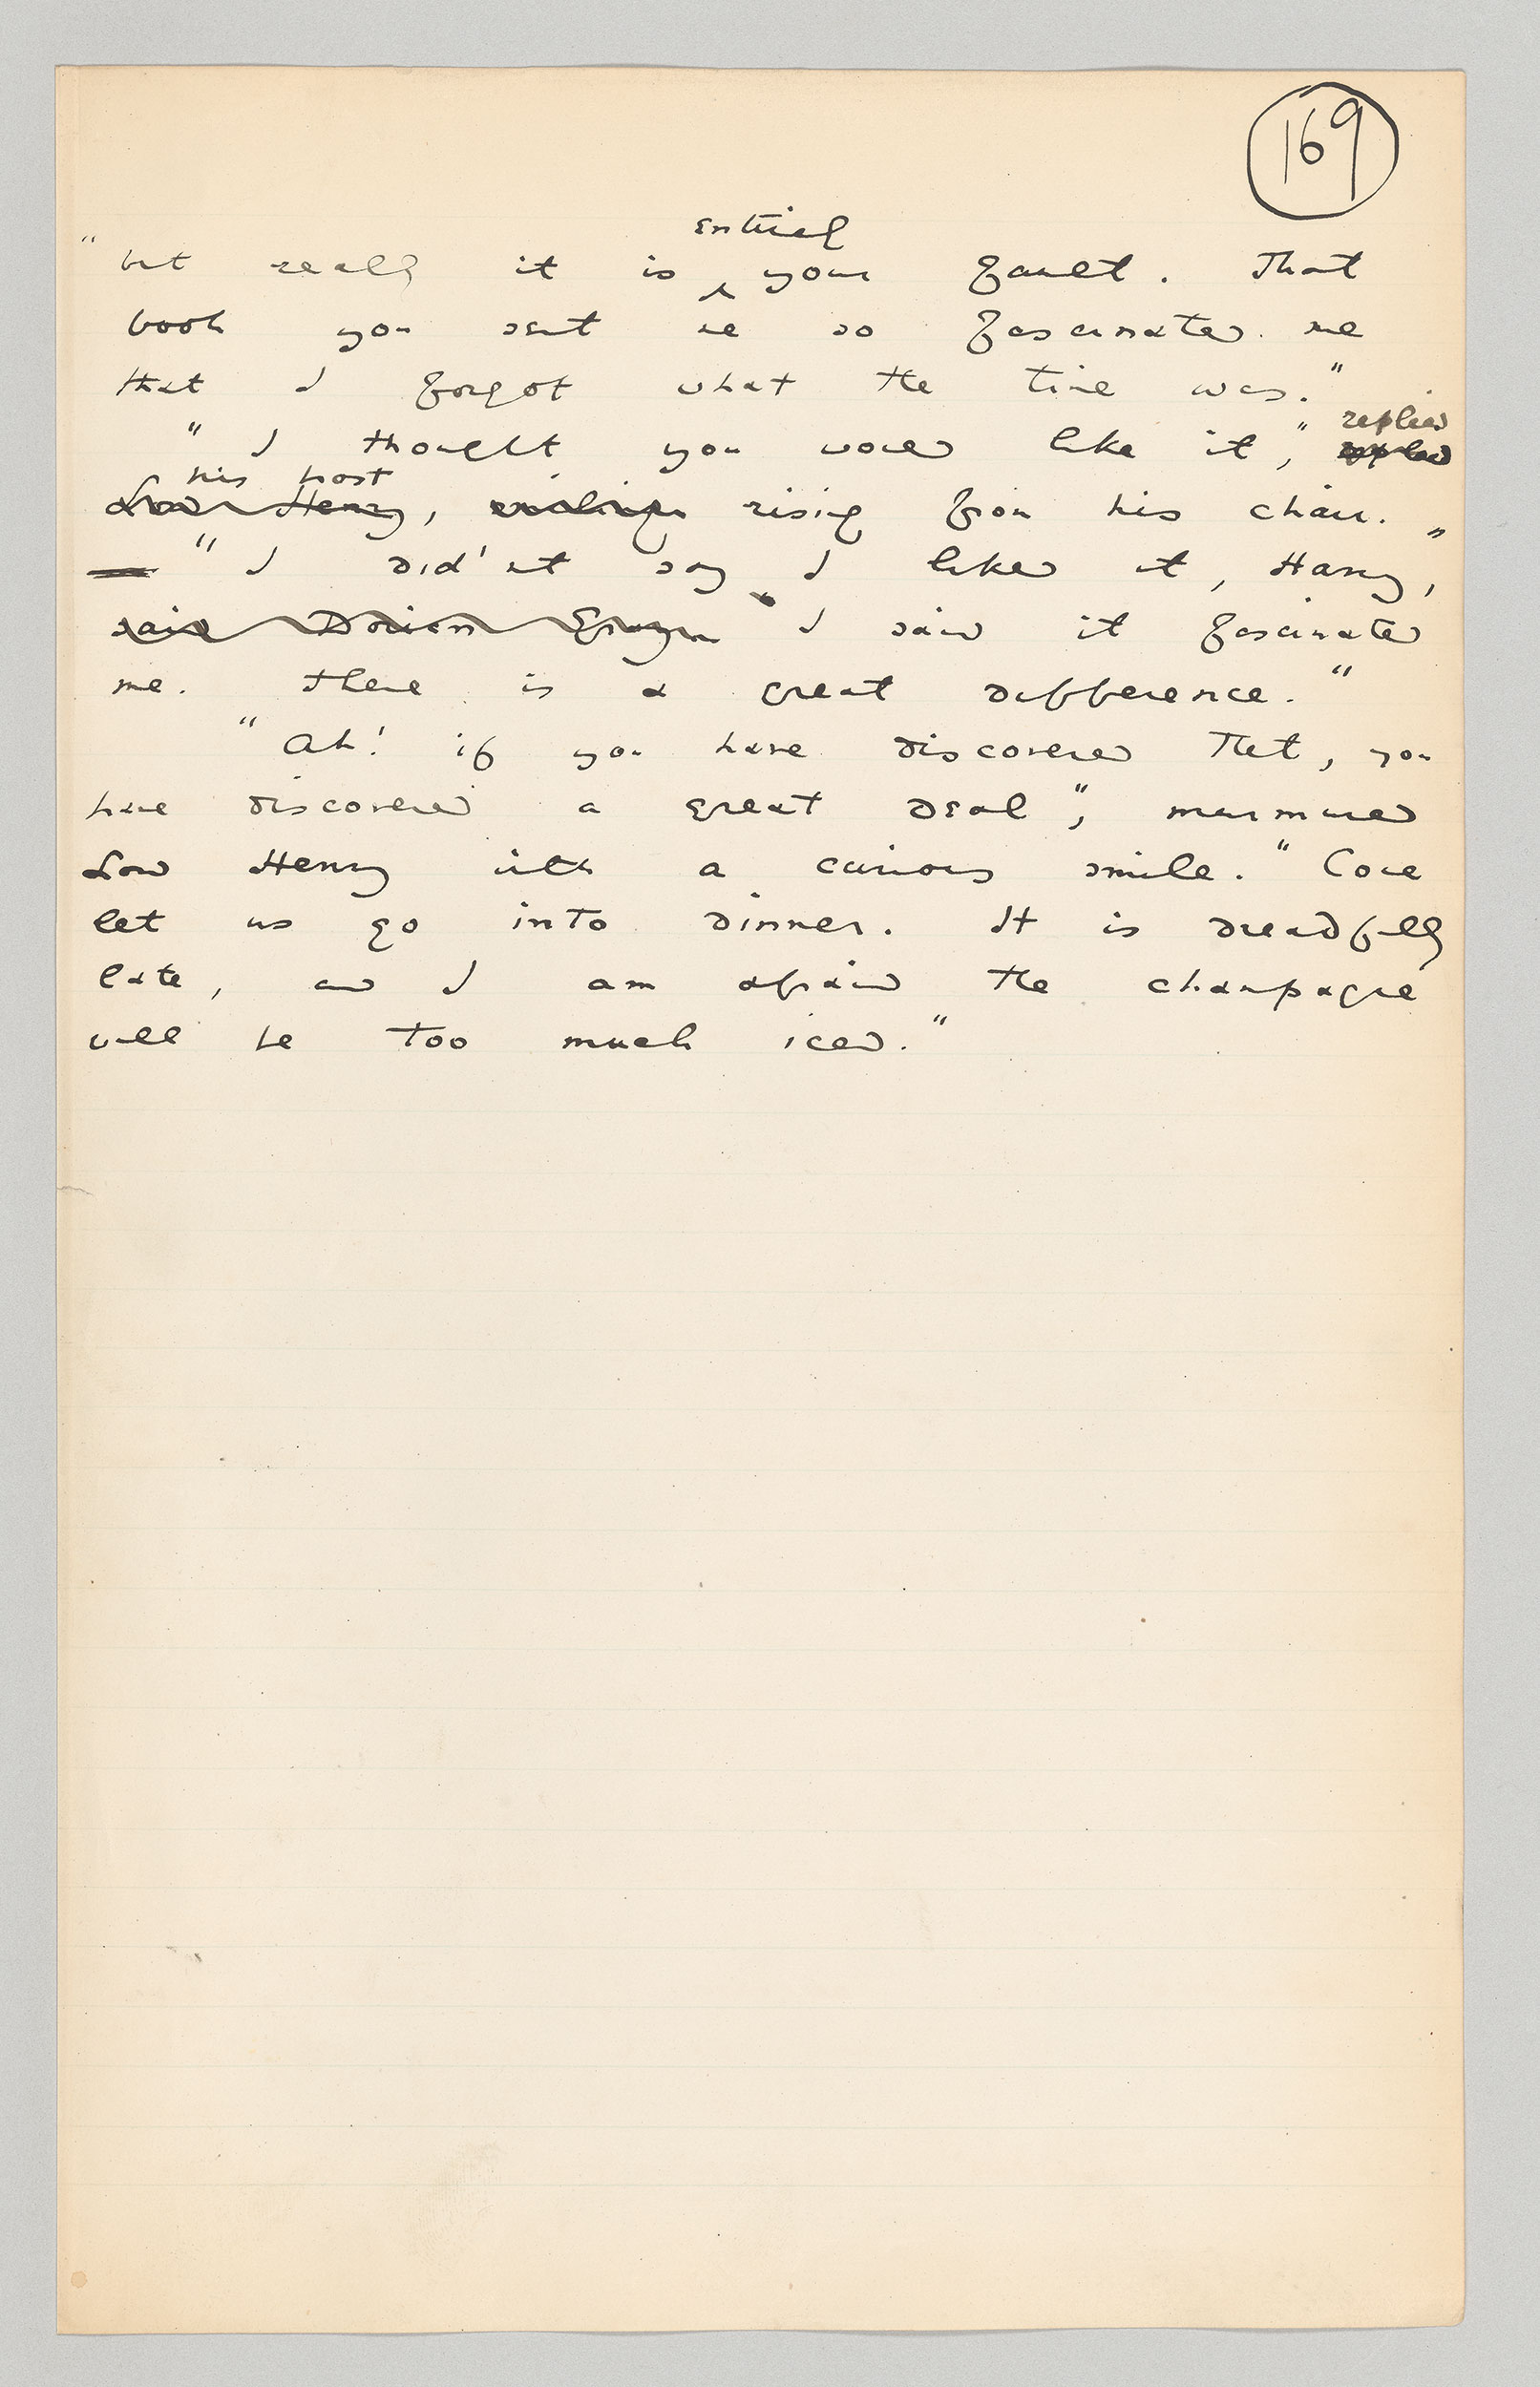 169
entirely
"but really it is ‸ your fault. That
book you sent me so fascinated me
that I forgot what the time was."
"I thought you would like it," replied
replied
his host
Lord Henry, smiling rising from his chair.
"I did'nt say I liked it, Harry,"
said Dorian Gray. "I said it fascinated
me. There is a great difference."
"Ah! if you have discovered that, you
have discovered a great deal", murmured
Lord Henry with a curious smile. "Come
let us go into dinner. It is dreadfully
late, and I am afraid the champagne
will be too much iced."